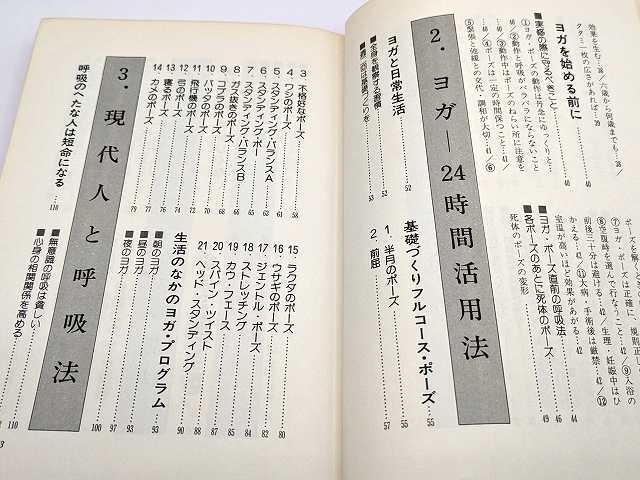 効果を生む…38／六歳から何歳までも…／
タタミ一枚の広さがあれば…39
ヨガを始める前に………40
■実修の際に守るべきこと………40
①ヨガ・ポーズの動作は丹念にゆっくりと…
40／②動作と呼吸がバラバラにならないこと
…40／③動作中はポーズのねらい所に注意を
…41／④ポーズは一定の時間保つこと…41／
⑤緊張と弛緩の交代、調和が大切…41／⑥
2．ヨガ―24時間活用法
ヨガと日常生活………52
■全身を観察する習慣………52
………53
ポーズを解く
⑦ヨガ・ポーズは正確に、規則正し
42／⑧空腹時を選んで行なうこと…42／⑨入浴の
前後三十分は避ける…42／⑩生理、妊娠中はひ
かえる…42／⑪大病・手術後は厳禁…42／⑫
室温が高いほど効果があがる…42
■ヨガ・ポーズ直前の呼吸法………44
■各ポーズのあとに死体のポーズ………46
死体のポーズの変形………49
基礎づくりフルコース・ポーズ………55
1．半月のポーズ………55
2．前屈………57
3　不格好なポーズ………58
4　ワシのポーズ………61
5　スタンディング・バランスA
6　スタンディング・ボー
7　スタンディング・バランスB
8　ガス抜きのポーズ
9　コブラのポーズ
10　バッタのポーズ
11　飛行機のポーズ
12　弓のポーズ
13　寝るポーズ………77
14　カメのポーズ………79
3．現代人と呼吸法
呼吸のへたな人は短命になる………110
15　ラクダのポーズ………80
16　ウサギのポーズ………82
17　ジェントル・ポーズ………84
18　ストレッチング………85
19　カウ・フェース………87
20　スパイン・ツイスト………88
21　ヘッド・スタンディング………90
生活のなかのヨガ・プログラム………93
■朝のヨガ………93
■昼のヨガ………97
■夜のヨガ………100
■無意識の呼吸は貧しい………110
■心身の相関関係を高める
3